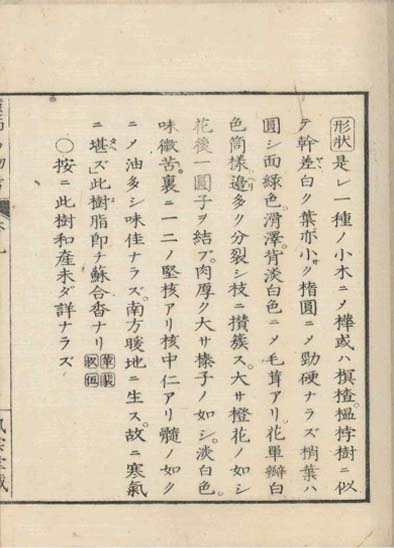 形状是レ一種ノ小木ニメ樺或ハ榠樝。榲桲樹ニ似
テ幹差白ク葉亦小ク楕圓ニメ勁硬ナラズ梢葉ハ
圓シ面緑色。滑澤。背淡白色ニメ毛茸アリ。花單瓣白
色筒樣。邉多ク分裂シ枝ニ攅簇ス。大サ橙花ノ如シ
花後一圓子ヲ結フ。肉厚ク大サ榛子ノ如シ。淡白色。
味微苦。裏ニ一二ノ堅核アリ核中仁アリ髓ノ如ク
ニメ油多シ味佳ナラズ。南方暖地ニ生ス。故ニ寒氣
ニ堪ズ此樹脂即チ蘇合香ナリ
〇按ニ此樹和産未ダ詳ナラズ